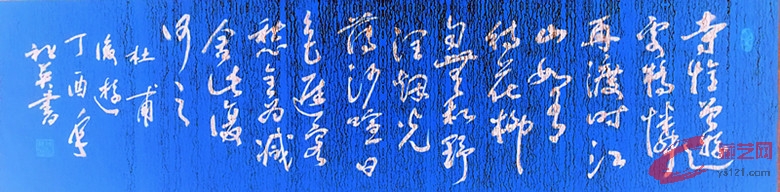 寺憶曾遊
處橋憐
再渡时江
山如有
待花柳
更無私野
润烟光
薄沙暄日
色遲客
愁全為减
舍此復
何之
杜甫
後遊
丁酉年
英書
艺网
y8121.com